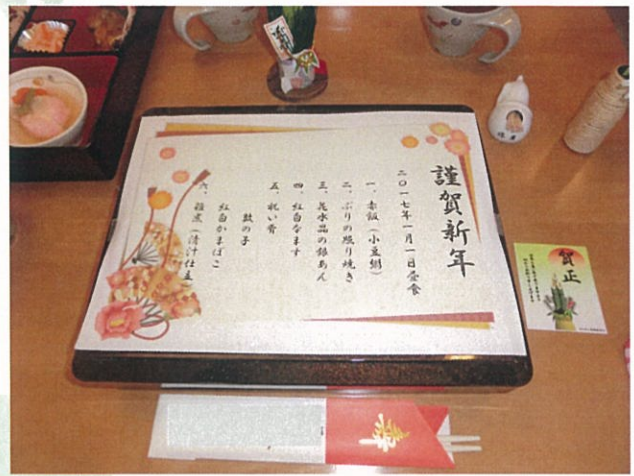 謹賀新年
二〇一七年一月一日昼食
一、赤飯（小豆粥）
二、ぶりの照り焼き
三、花水晶の銀あん
四、紅白なます
五、祝い肴
数の子
紅白かまぼこ
六、雑煮（清汁仕立）
賀正
寿